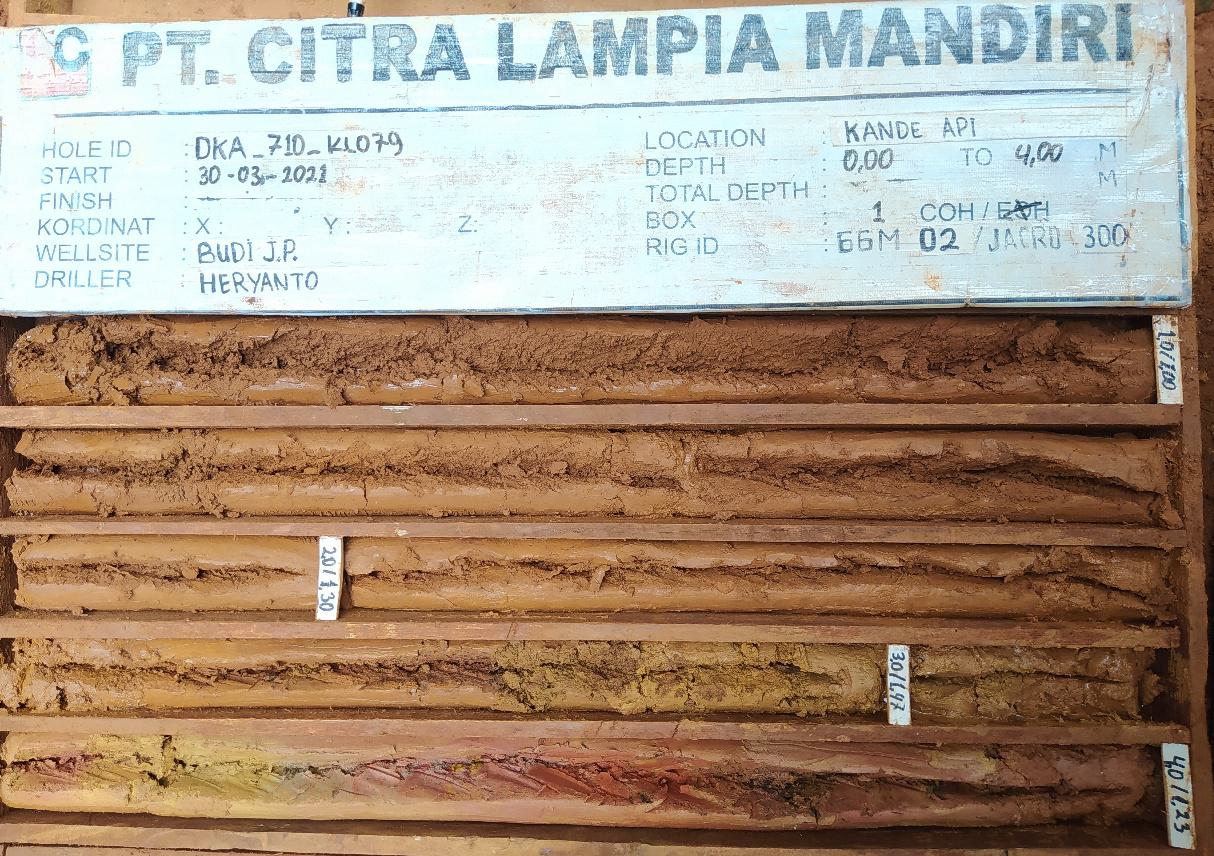 PT. CITRA LAMPIA MANDIRI
HOLE ID : DKA_710_KL079
START : 30-03-2021
FINISH :
KORDINAT : X : Y : Z:
WELLSITE : BUDI J.P.
DRILLER : HERYANTO
LOCATION : KANDE API
DEPTH : 0,00 TO 4,00 M
TOTAL DEPTH : M
BOX : 1 COH / EOH
RIG ID : BBM 02 / JACRO 300
1,0/1,00
2,0/1,30
3,0/1,47
4,0/1,23